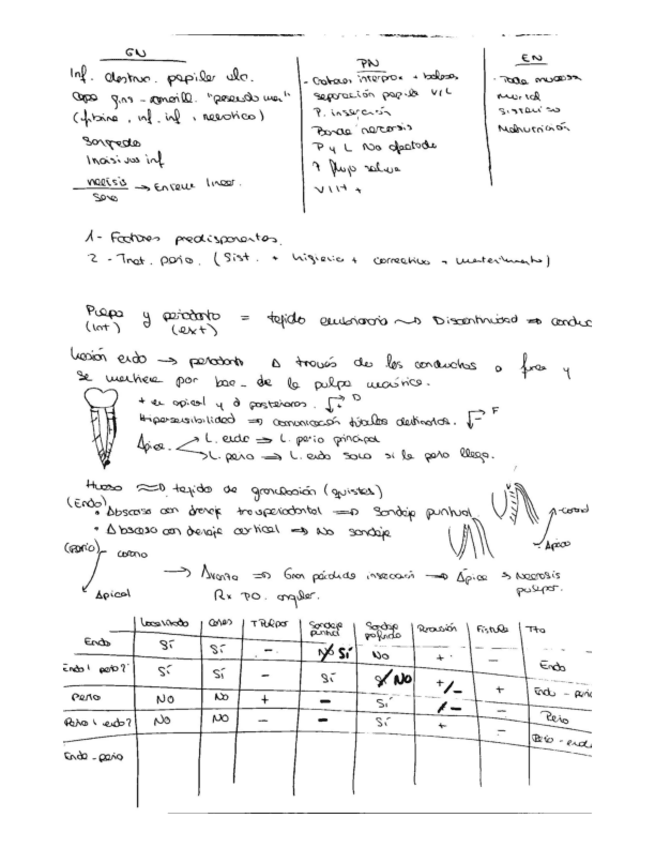 GN
Inf. destruc. papilar ulc.
Capa gris - amarill. "pseudo mem"
(fibrina, inf. inf, necrotico)
Sangrado
Incisivos inf
necrosis → Eritema linear.
Sano
PN
- Crateres interprox + balosos
separación papila V/L
P. inserción
Borde necrosis
P y L No afectado
? flujo saliva
VIH +
EN
- Toda mucosa
mortal
Sistemico
Malnutrición
1- Factores predisponentes.
2 - Trat. perio. (Sist. + higiene + correctivo + mantenimiento)
Pulpa y periodonto = tejido embrionario ~> Discontinuidad => conduc
(int) (ext)
Lesión endo → periodonto a través de los conductos o furca y
se mantiene por bac. de la pulpa necrótica.
+ en apical y a posteriores. D
Hipersensibilidad => comunicación túbulos dentinarios. F
Apice. L. endo => L. perio principal
L. perio => L. endo solo si la perio llega.
Hueso tejido de granulación (quistes)
(Endo)
• Absceso con drenaje transperiodontal => Sondaje puntual
• Absceso con drenaje cortical => No sondaje
Corona
Apice
(Perio) corona
Apical
→ Avanza => Gran pérdida inserción → Ápice → Necrosis
Rx PO. angular. pulpar.
Localizado | Caries | T Pulpar | Sondaje puntual | Sondaje profundo | Percusión | Fistula | Tto
Endo | Sí | Sí | - | No Sí | No | + | - | Endo
Endo! perio? | Sí | Sí | - | Sí | Si No | +/- | + | Endo - perio
Perio | No | No | + | - | Sí | /- | - | Perio
Perio! endo? | No | No | - | - | Sí | + | - | Perio - endo
Endo - perio